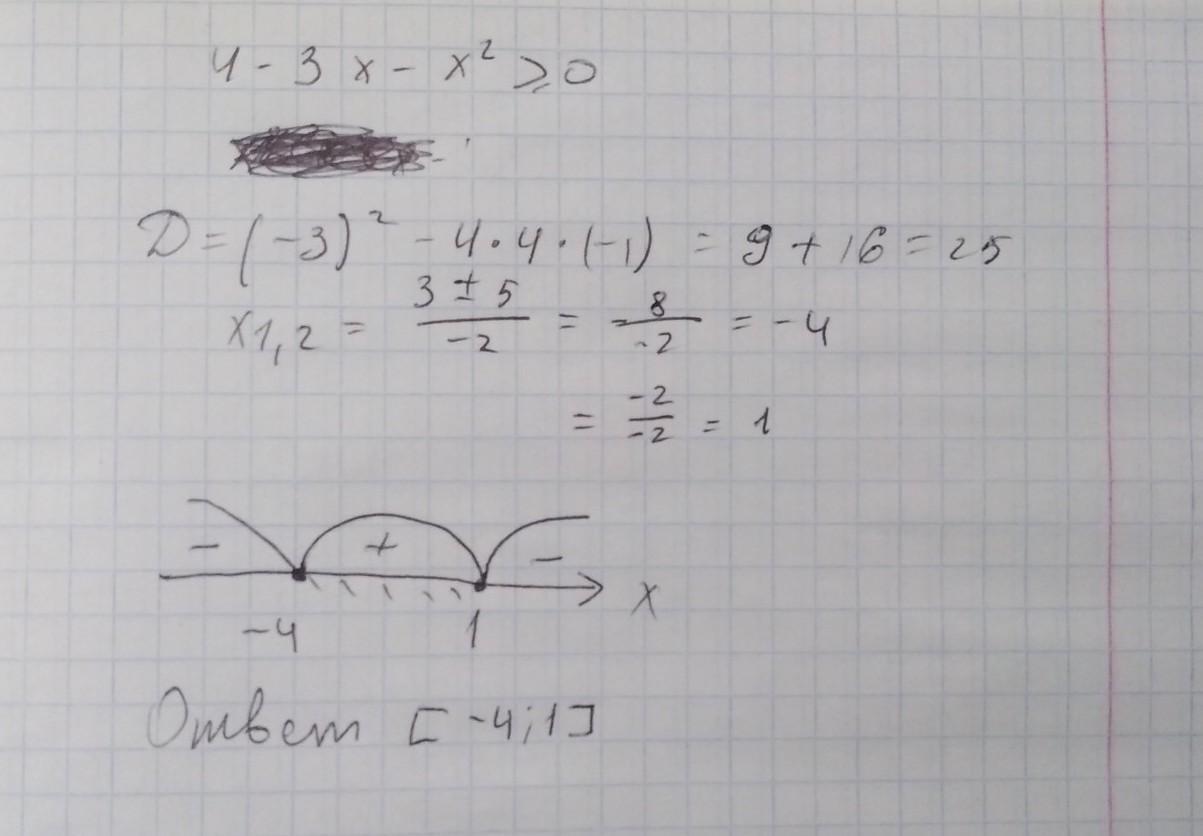 4 - 3x - x² ⩾ 0
D = (-3)² - 4·4·(-1) = 9 + 16 = 25
x1,2 = (3 ± 5)/(-2) = 8/(-2) = -4
= (-2)/(-2) = 1
- + -
-4 1 x
Ответ [-4;1]